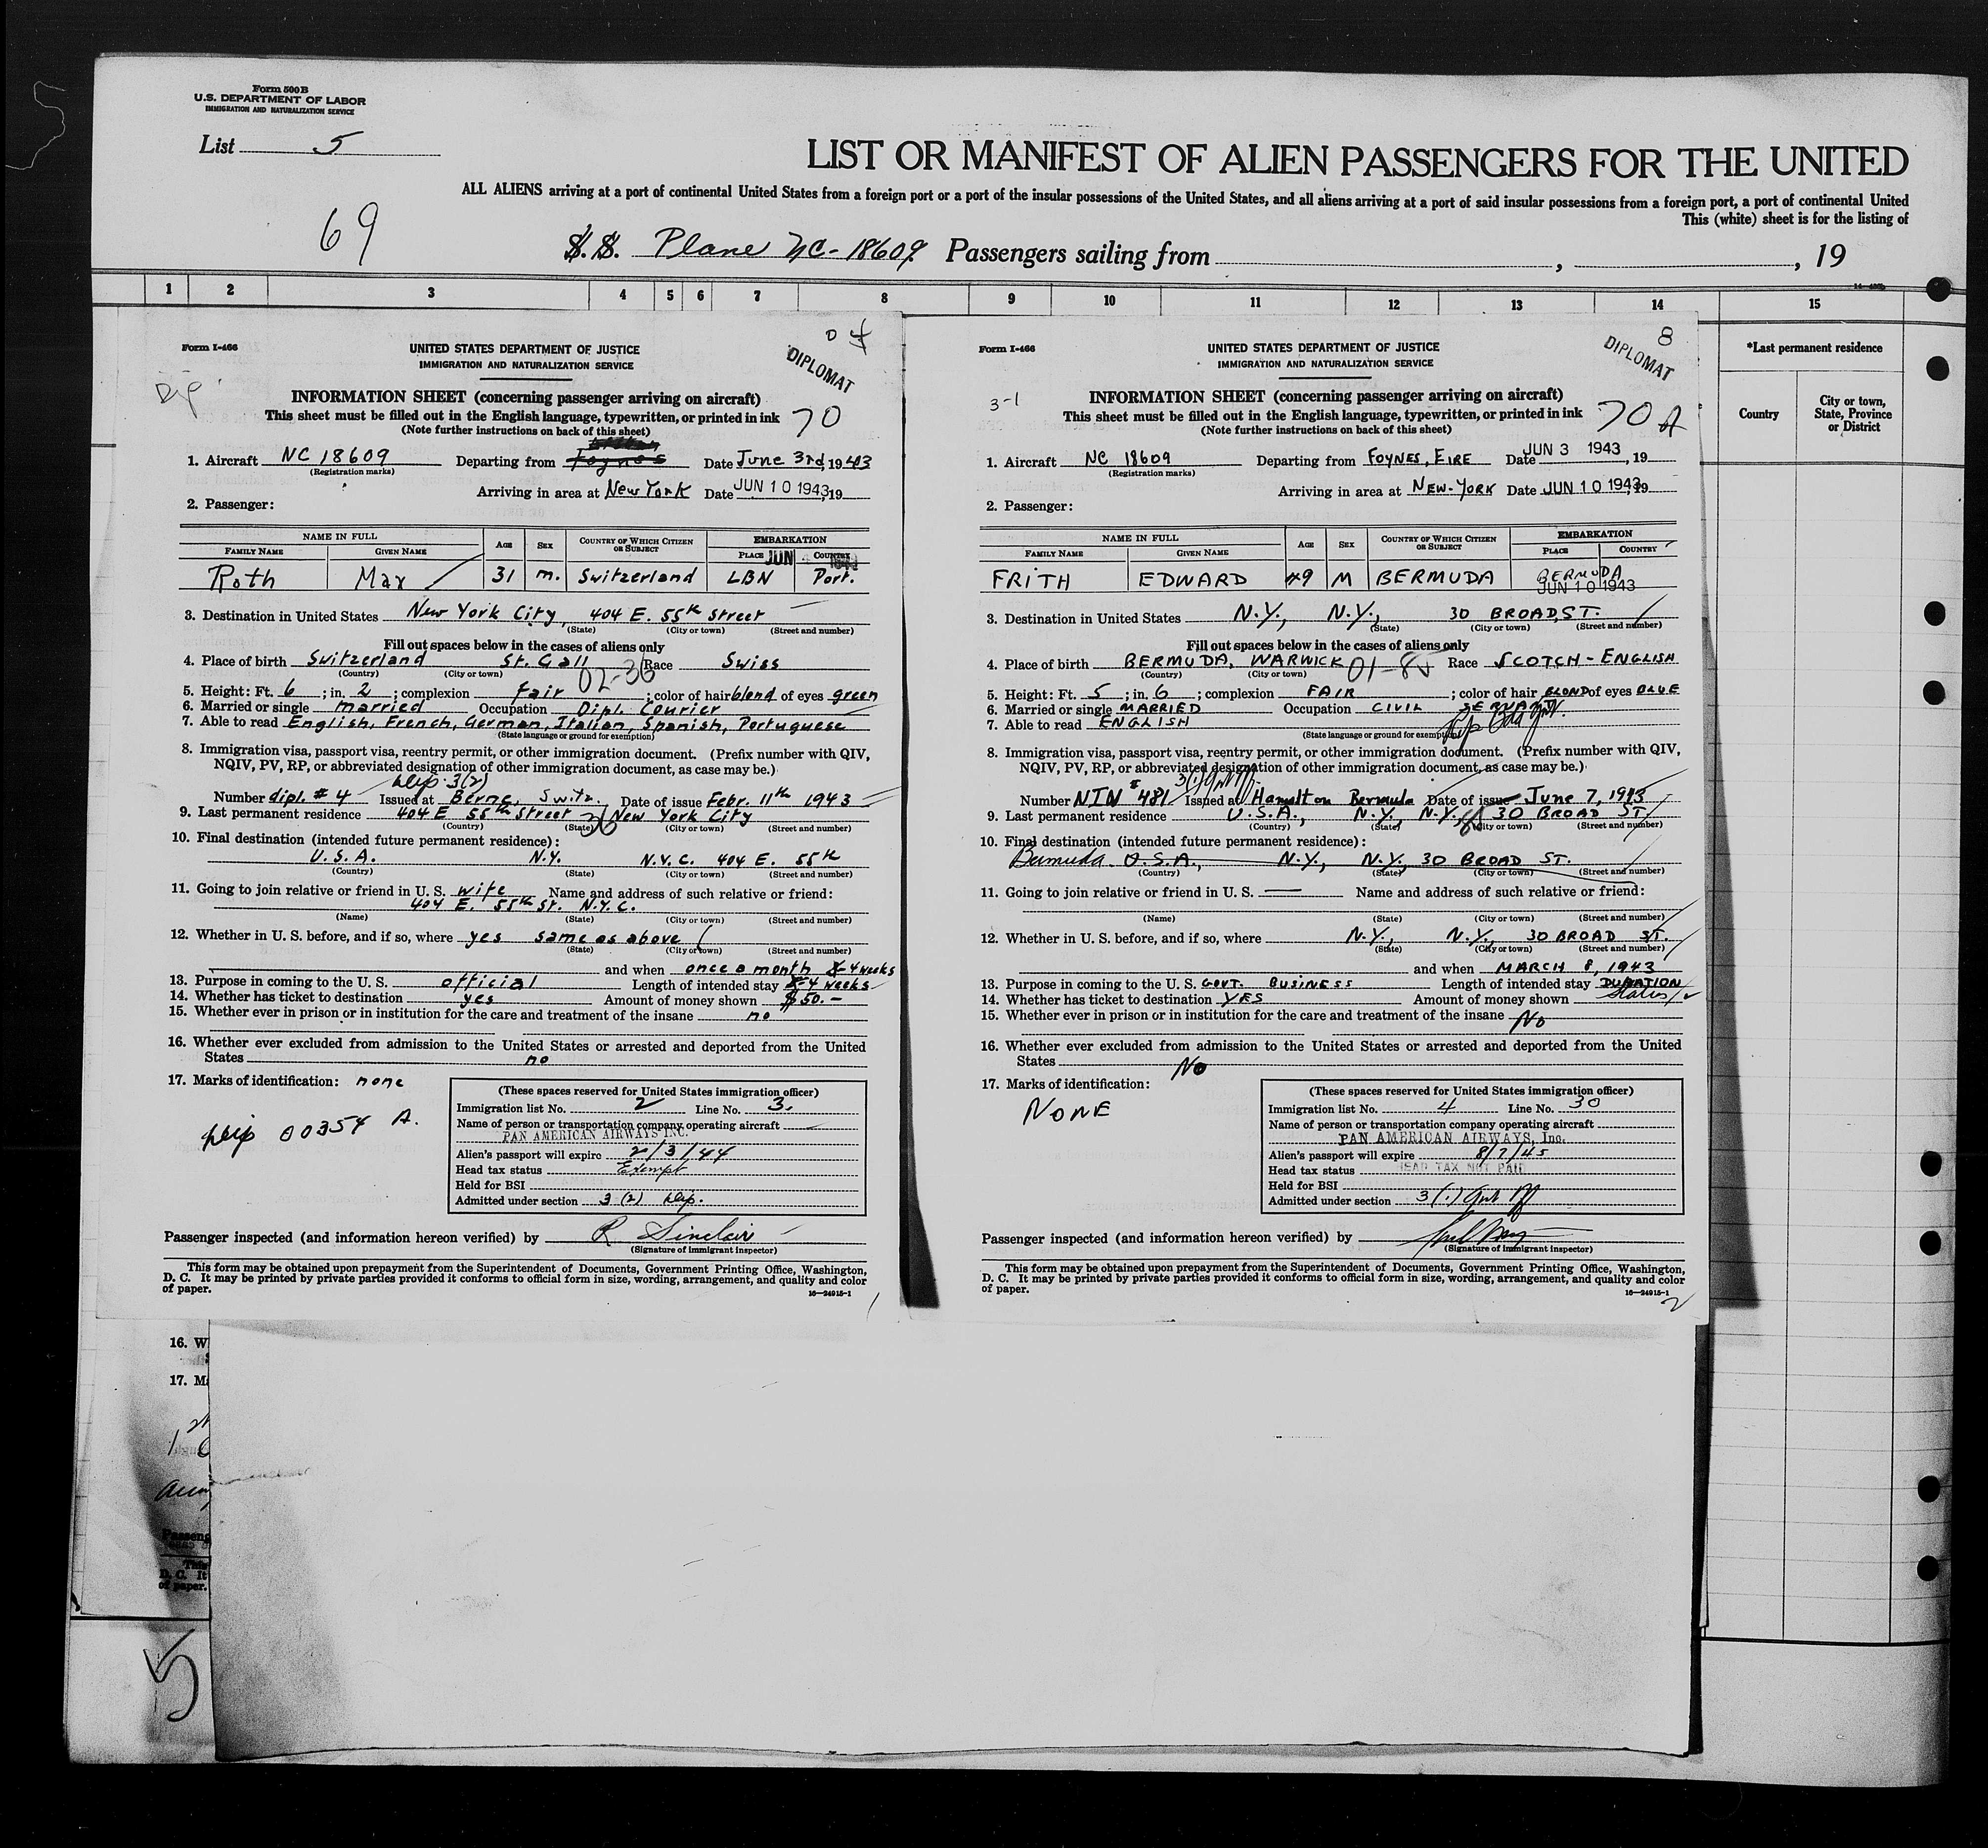 Form 500B
U.S. DEPARTMENT OF LABOR
IMMIGRATION AND NATURALIZATION SERVICE
List 5
LIST OR MANIFEST OF ALIEN PASSENGERS FOR THE UNITED
ALL ALIENS arriving at a port of continental United States from a foreign port or a port of the insular possessions of the United States, and all aliens arriving at a port of said insular possessions from a foreign port, a port of continental United
This (white) sheet is for the listing of
69
S.S. Plane NC-18609 Passengers sailing from , , 19
1 2 3 4 5 6 7 8 9 10 11 12 13 14 15
*Last permanent residence
Country
City or town, State, Province or District
04
DIPLOMAT
Form I-466
UNITED STATES DEPARTMENT OF JUSTICE
IMMIGRATION AND NATURALIZATION SERVICE
Dip
INFORMATION SHEET (concerning passenger arriving on aircraft)
This sheet must be filled out in the English language, typewritten, or printed in ink
70
(Note further instructions on back of this sheet)
1. Aircraft NC 18609 Departing from Foynes Date June 3rd, 1943
(Registration marks)
Arriving in area at New York Date JUN 10 1943, 19
2. Passenger:
NAME IN FULL AGE SEX COUNTRY OF WHICH CITIZEN OR SUBJECT EMBARKATION
FAMILY NAME GIVEN NAME PLACE COUNTRY
JUN
Roth Max 31 m. Switzerland LBN Port.
3. Destination in United States New York City, 404 E. 55th Street
(State) (City or town) (Street and number)
Fill out spaces below in the cases of aliens only
4. Place of birth Switzerland St. Gall Race Swiss
(Country) (City or town)
02-36
5. Height: Ft. 6 ; in. 2 ; complexion fair ; color of hair blond of eyes green
6. Married or single married Occupation Dipl. Courier
7. Able to read English, French, German, Italian, Spanish, Portuguese
(State language or ground for exemption)
8. Immigration visa, passport visa, reentry permit, or other immigration document. (Prefix number with QIV,
NQIV, PV, RP, or abbreviated designation of other immigration document, as case may be.)
Dip. 3(2)
Number dipl. # 4 Issued at Berne, Switz. Date of issue Febr. 11th 1943
9. Last permanent residence 404 E 55th Street New York City
(Country) (State) (City or town) (Street and number)
10. Final destination (intended future permanent residence):
U.S.A. N.Y. N.Y.C. 404 E. 55th
(Country) (State) (City or town) (Street and number)
11. Going to join relative or friend in U. S. wife Name and address of such relative or friend:
404 E. 55th St. N.Y.C.
(Name) (State) (City or town) (Street and number)
12. Whether in U. S. before, and if so, where yes same as above
(State) (City or town) (Street and number)
and when once a month 4 weeks
13. Purpose in coming to the U. S. official Length of intended stay 4 weeks
14. Whether has ticket to destination yes Amount of money shown $50.-
15. Whether ever in prison or in institution for the care and treatment of the insane no
16. Whether ever excluded from admission to the United States or arrested and deported from the United
States no
17. Marks of identification: none
Dip 00354 A.
(These spaces reserved for United States immigration officer)
Immigration list No. 2 Line No. 3.
Name of person or transportation company operating aircraft
PAN AMERICAN AIRWAYS INC.
Alien's passport will expire 2/3/44
Head tax status Exempt
Held for BSI
Admitted under section 3 (2) Dip.
Passenger inspected (and information hereon verified) by R Sinclair
(Signature of immigrant inspector)
This form may be obtained upon prepayment from the Superintendent of Documents, Government Printing Office, Washington,
D. C. It may be printed by private parties provided it conforms to official form in size, wording, arrangement, and quality and color
of paper.
16—24915-1
1
8
DIPLOMAT
Form I-466
UNITED STATES DEPARTMENT OF JUSTICE
IMMIGRATION AND NATURALIZATION SERVICE
3-1
INFORMATION SHEET (concerning passenger arriving on aircraft)
This sheet must be filled out in the English language, typewritten, or printed in ink
70 A
(Note further instructions on back of this sheet)
1. Aircraft NC 18609 Departing from FOYNES, EIRE Date JUN 3 1943, 19
(Registration marks)
Arriving in area at NEW-YORK Date JUN 10 1943, 19
2. Passenger:
NAME IN FULL AGE SEX COUNTRY OF WHICH CITIZEN OR SUBJECT EMBARKATION
FAMILY NAME GIVEN NAME PLACE COUNTRY
FRITH EDWARD 49 M BERMUDA BERMUDA
JUN 10 1943
3. Destination in United States N.Y., N.Y., 30 BROAD ST.
(State) (City or town) (Street and number)
Fill out spaces below in the cases of aliens only
4. Place of birth BERMUDA, WARWICK Race SCOTCH-ENGLISH
(Country) (City or town)
5. Height: Ft. 5 ; in. 6 ; complexion FAIR ; color of hair BLOND of eyes BLUE
6. Married or single MARRIED Occupation CIVIL SERVANT
7. Able to read ENGLISH
(State language or ground for exemption)
8. Immigration visa, passport visa, reentry permit, or other immigration document. (Prefix number with QIV,
NQIV, PV, RP, or abbreviated designation of other immigration document, as case may be.)
Number NIN # 481 Issued at Hamilton Bermuda Date of issue June 7, 1943
9. Last permanent residence U.S.A., N.Y., N.Y., 30 BROAD ST
(Country) (State) (City or town) (Street and number)
10. Final destination (intended future permanent residence):
Bermuda U.S.A., N.Y., N.Y., 30 BROAD ST.
(Country) (State) (City or town) (Street and number)
11. Going to join relative or friend in U. S. — Name and address of such relative or friend:
(Name) (State) (City or town) (Street and number)
12. Whether in U. S. before, and if so, where N.Y., N.Y., 30 BROAD ST.
(State) (City or town) (Street and number)
and when MARCH 8, 1943
13. Purpose in coming to the U. S. GOVT. BUSINESS Length of intended stay DURATION
14. Whether has ticket to destination YES Amount of money shown
15. Whether ever in prison or in institution for the care and treatment of the insane No
16. Whether ever excluded from admission to the United States or arrested and deported from the United
States No
17. Marks of identification:
NONE
(These spaces reserved for United States immigration officer)
Immigration list No. 4 Line No. 30
Name of person or transportation company operating aircraft
PAN AMERICAN AIRWAYS, Inc.
Alien's passport will expire 8/7/45
Head tax status HEAD TAX NOT PAID
Held for BSI
Admitted under section 3(1)
Passenger inspected (and information hereon verified) by
(Signature of immigrant inspector)
This form may be obtained upon prepayment from the Superintendent of Documents, Government Printing Office, Washington,
D. C. It may be printed by private parties provided it conforms to official form in size, wording, arrangement, and quality and color
of paper.
16—24915-1
2
16. W
17. M
Passeng
This
D. C. It
of paper.
5